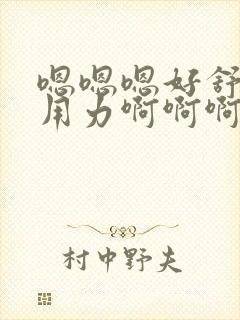 嗯嗯嗯好舒
用力啊啊啊
村中野夫